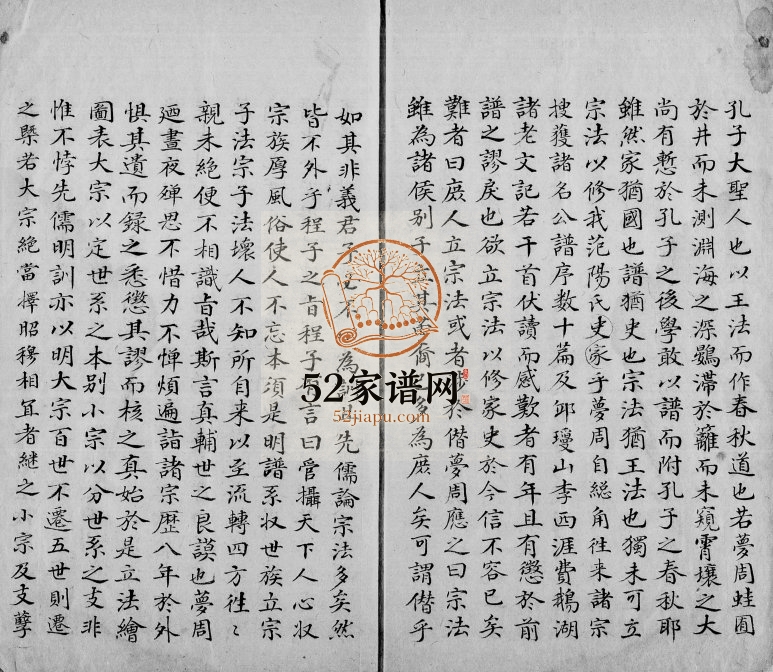 孔子大聖人也以王法而作春秋道也若夢周蛙囿
於井而未測淵海之深鷃滯於籬而未窺霄壤之大
尚有慙於孔子之後學敢以譜而附孔子之春秋耶
雖然家猶國也譜猶史也宗法猶王法也獨未可立
宗法以修我范陽氏史家乎夢周自總角往來諸宗
搜獲諸名公譜序数十篇及邱瓊山李西涯費鵝湖
諸老文記若干首伏讀而感歎者有年且有懲於前
譜之謬戾也欲立宗法以修家史於今信不容已矣
難者曰庻人立宗法或者於僣夢周應之曰宗法
雖為諸侯别子其多為庻人矣可謂僣乎
如其非義君子為先儒論宗法多矣然
皆不外乎程子之㫖程子言曰管攝天下人心収
宗族厚風俗使人不忘本須是明譜系収世族立宗
子法宗子法壞人不知所自来以至流轉四方徃〻
親未絶便不相識㫖哉斯言真輔世之良謨也夢周
廼晝夜殫思不惜力不憚煩遍詣諸宗歴八年於外
惧其遺而録之悉懲其謬而核之真始於是立法繪
圖表大宗以定世系之本别小宗以分世系之支非
惟不悖先儒明訓亦以明大宗百世不遷五世則遷
之㮣若大宗絶當擇昭穆相宜者継之小宗及支孽
52家谱网
52jiapu.com